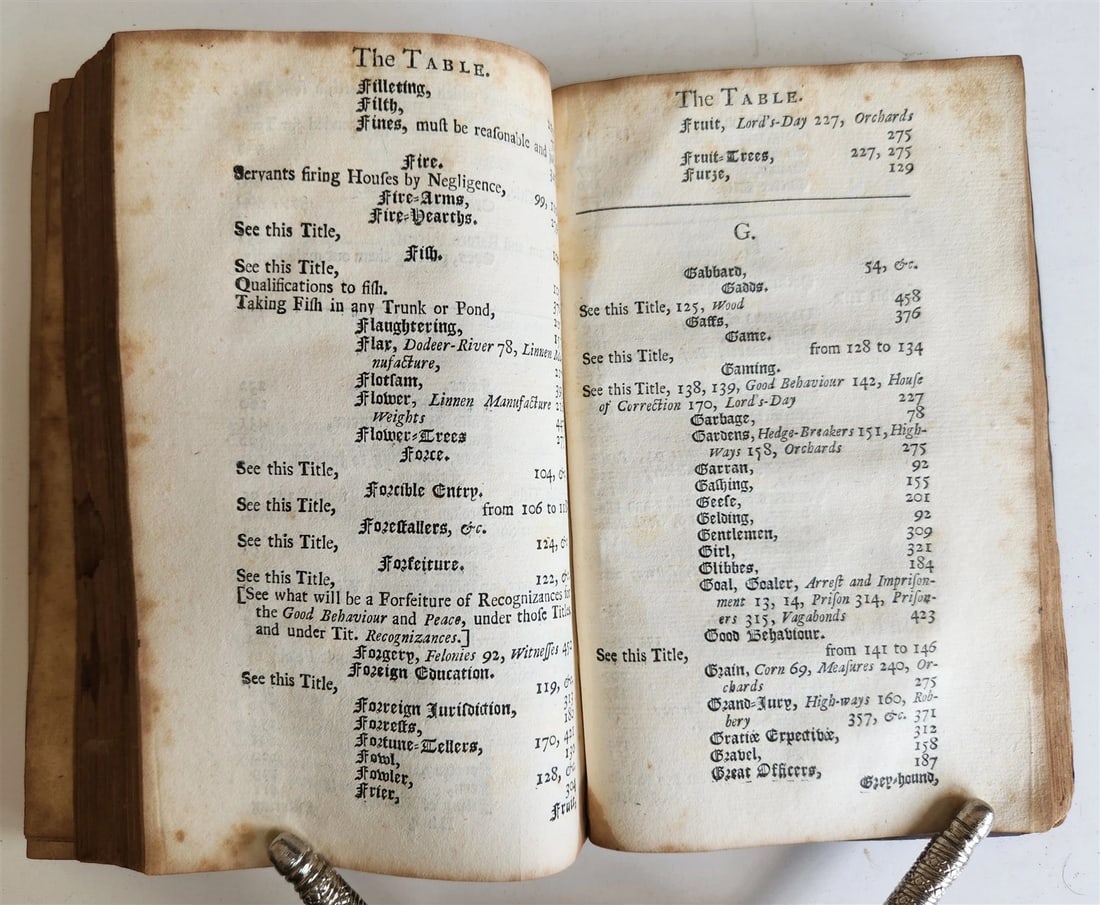 The TABLE.
Filleting,
Filth,
Fines, muſt be reaſonable and
Fire.
Servants firing Houſes by Negligence, 99,
Fire-Arms,
Fire-Hearths.
See this Title,
Fiſh.
See this Title,
Qualifications to fiſh.
Taking Fiſh in any Trunk or Pond,
Flaughtering,
Flax, Dodeer-River 78, Linnen
nufacture,
Flotſam,
Flower, Linnen Manufacture
Weights
Flower-Trees
Force.
See this Title, 104,
Forcible Entry.
See this Title, from 106 to
Foreſtallers, &c.
See this Title, 124,
Forfeiture.
See this Title, 122,
[See what will be a Forfeiture of Recognizances
the Good Behaviour and Peace, under thoſe
and under Tit. Recognizances.]
Forgery, Felonies 92, Witneſſes
Foreign Education.
See this Title, 119,
Forreign Juriſdiction,
Forreſts,
Fortune-Tellers, 170,
Fowl,
Fowler, 128,
Frier, 304
Fruit,
The TABLE.
Fruit, Lord's-Day 227, Orchards
275
Fruit-Trees, 227, 275
Furze, 129
G.
Gabbard, 54, &c.
Gadds.
See this Title, 125, Wood 458
Gaffs, 376
Game.
See this Title, from 128 to 134
Gaming.
See this Title, 138, 139, Good Behaviour 142, Houſe
of Correction 170, Lord's-Day 227
Garbage, 78
Gardens, Hedge-Breakers 151, High-
Ways 158, Orchards 275
Garran, 92
Gaſhing, 155
Geeſe, 201
Gelding, 92
Gentlemen, 309
Girl, 321
Glibbes, 184
Goal, Goaler, Arreſt and Impriſon-
ment 13, 14, Priſon 314, Priſon-
ers 315, Vagabonds 423
Good Behaviour.
See this Title, from 141 to 146
Grain, Corn 69, Meaſures 240, Or-
chards 275
Grand-Jury, High-ways 160, Rob-
bery 357, &c. 371
Gratiæ Expectivæ, 312
Gravel, 158
Great Officers, 187
Grey-hound,